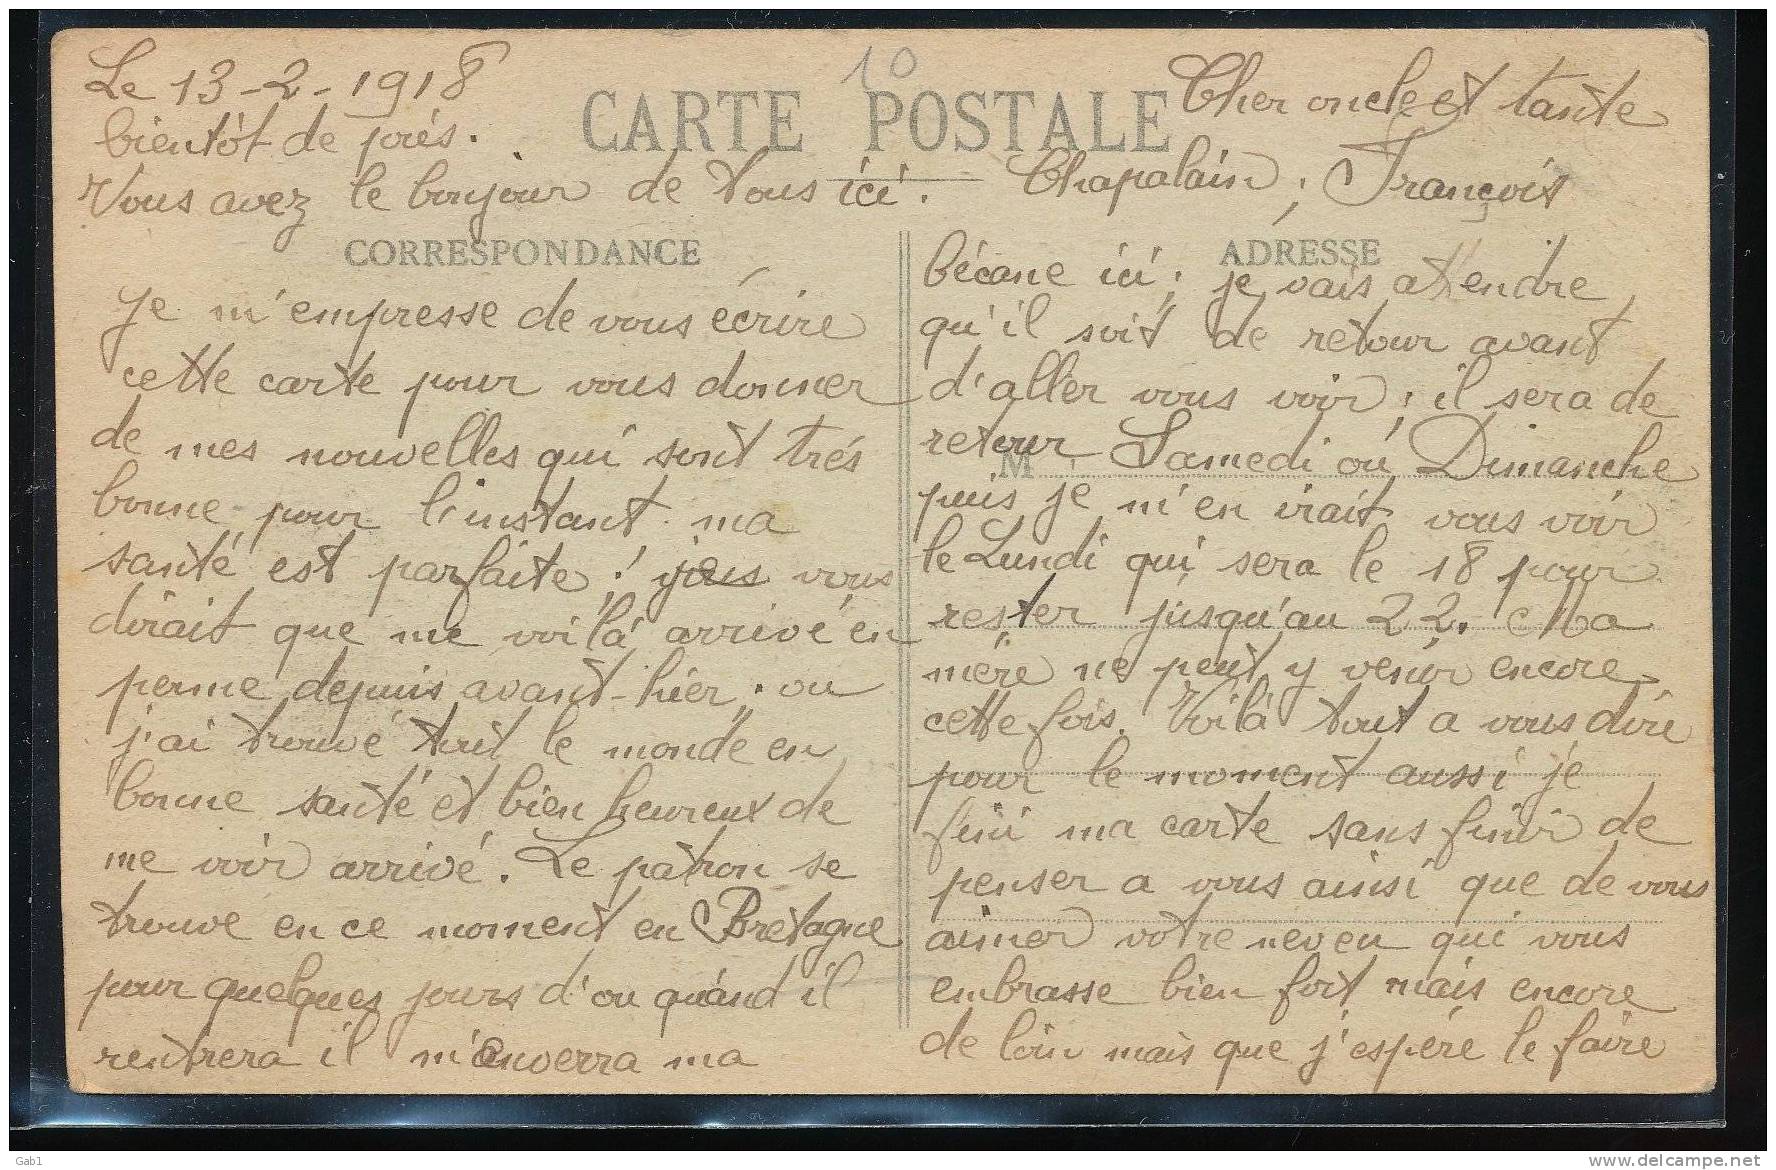 Le 13-2-1918
Cher oncle et tante
Je m'empresse de vous écrire
cette carte pour vous donner
de mes nouvelles qui sont trés
bonne pour l'instant ma
santé est parfaite ! vous
dirait que me voilà arrivé en
perme depuis avant-hier, ou
j'ai trouvé tout le monde en
bonne santé et bien heureux de
me voir arrivé. Le patron se
trouve en ce moment en Bretagne
pour quelques jours d'ou quand il
rentrera il m'enverra ma
bécane ici ; je vais attendre
qu'il soit de retour avant
d'aller vous voir ; il sera de
retour Samedi ou Dimanche
puis je m'en irait vous voir
le Lundi qui sera le 18 pour
rester jusqu'au 22. Ma
mère ne peut y venir encore
cette fois. Voilà tout a vous dire
pour le moment aussi je
fini ma carte sans finir de
penser a vous ainsi que de vous
aimer votre neveu qui vous
embrasse bien fort mais encore
de loin mais que j'espére le faire
bientôt de prés.
Vous avez le bonjour de tous ici. Chapalain, François
10
CARTE POSTALE
CORRESPONDANCE
ADRESSE
M
Gab1
delcampe.net